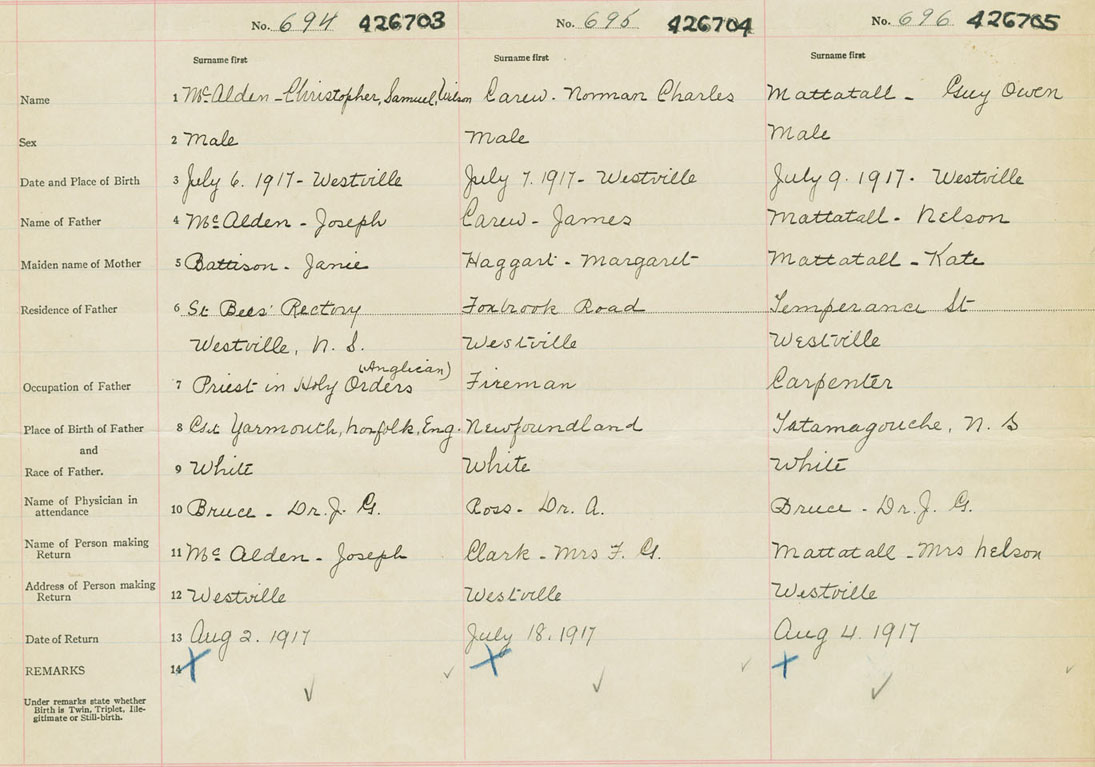 No. 694 426703 No. 695 426704 No. 696 426705
Surname first Surname first Surname first
Name 1 McAlden - Christopher, Samuel, Wilson Carew. Norman Charles Mattatall - Guy Owen
Sex 2 Male Male Male
Date and Place of Birth 3 July 6. 1917 - Westville July 7. 1917 - Westville July 9. 1917. Westville
Name of Father 4 McAlden - Joseph Carew - James Mattatall - Nelson
Maiden name of Mother 5 Battison - Janie Haggart - Margaret Mattatall - Kate
Residence of Father 6 St Bees' Rectory Foxbrook Road Temperance St
Westville, N. S. Westville Westville
(Anglican)
Occupation of Father 7 Priest in Holy Orders Fireman Carpenter
Place of Birth of Father 8 Yarmouth, Norfolk, Eng. Newfoundland Tatamagouche, N. S
and
Race of Father. 9 White White White
Name of Physician in
attendance 10 Bruce - Dr. J. G. Ross - Dr. A. Bruce - Dr. J. G.
Name of Person making
Return 11 McAlden - Joseph Clark - Mrs F. G. Mattatall - Mrs Nelson
Address of Person making
Return 12 Westville Westville Westville
Date of Return 13 Aug 2. 1917 July 18. 1917 Aug 4. 1917
REMARKS 14
Under remarks state whether
Birth is Twin, Triplet, Ille-
gitimate or Still-birth.